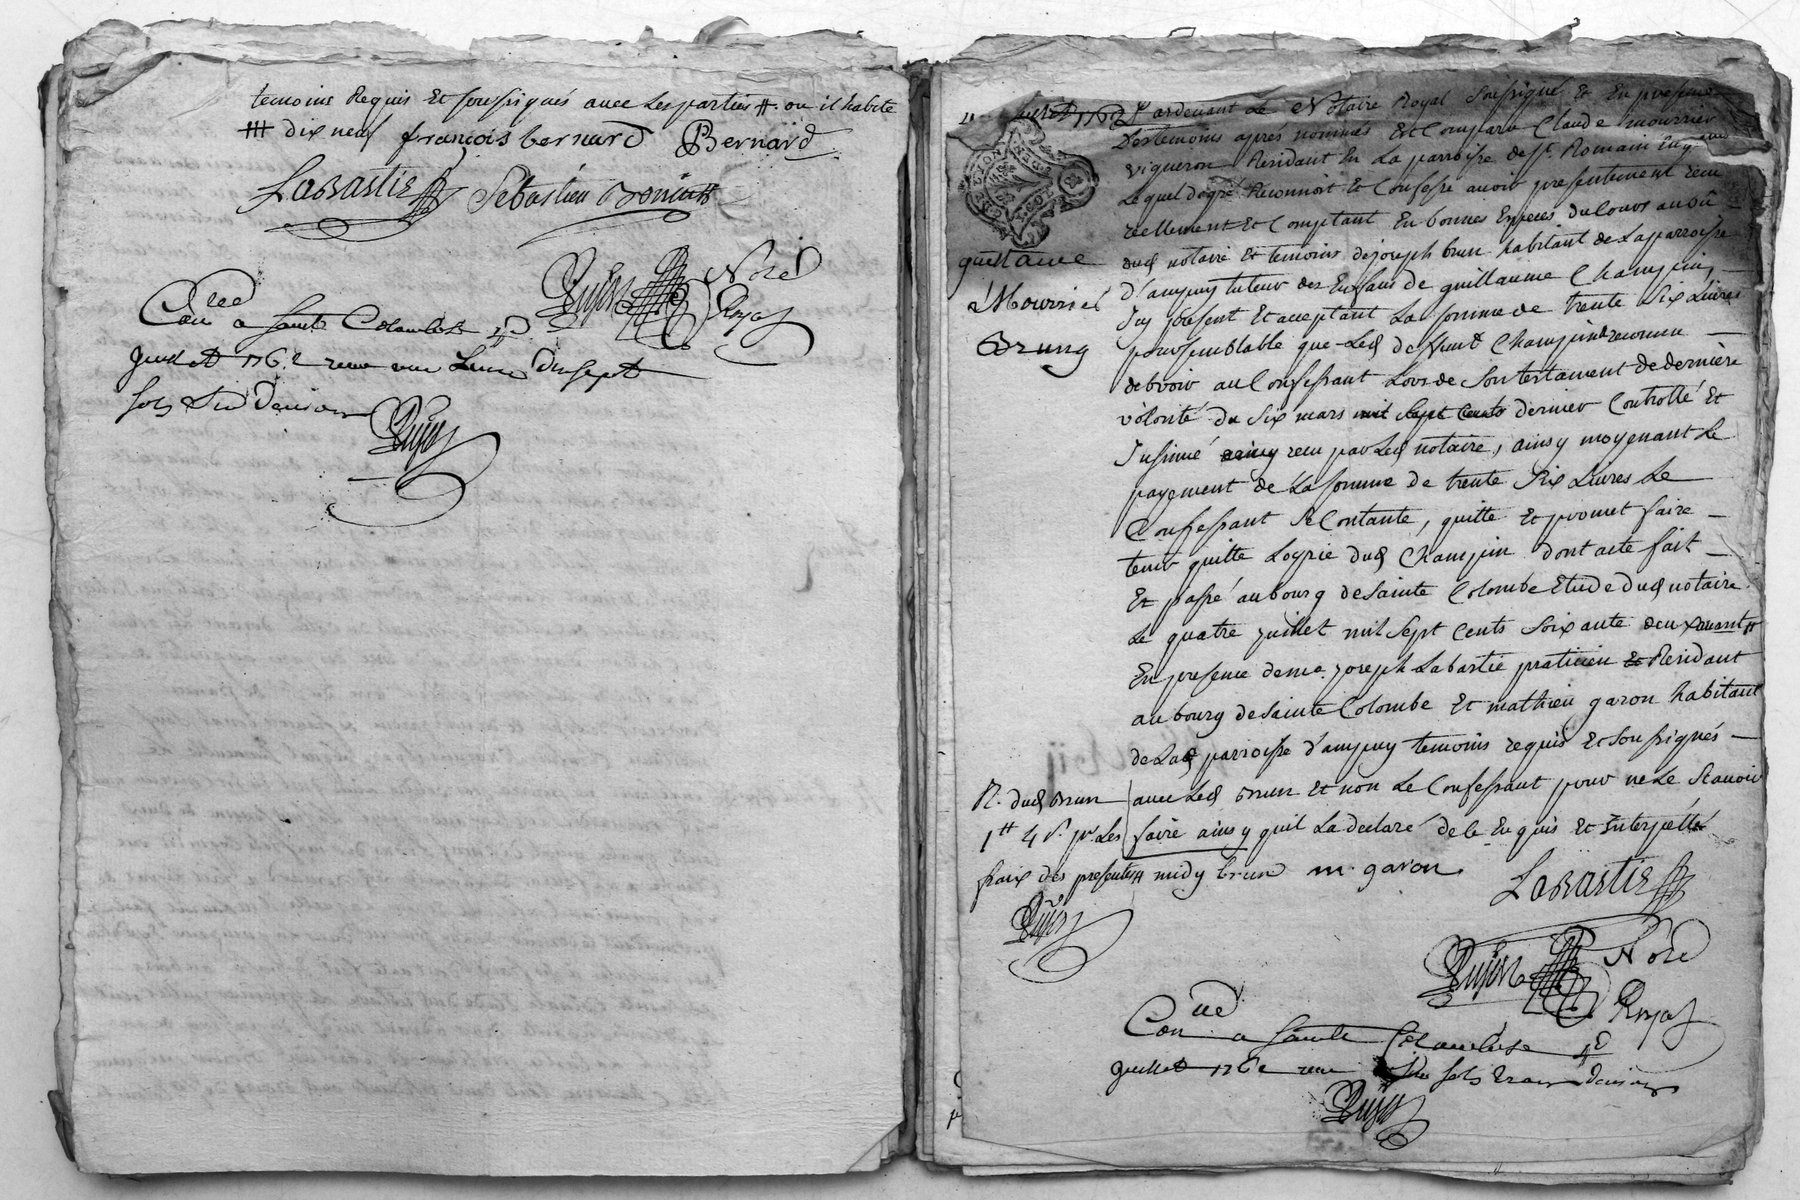 temoins Requis Et soussignés avec Les parties #. ou il habite
# dix neuf françois bernard Bernard
LABASTIE Sebastien
Noré
Royal
Con rée a Sainte Colombe
juillet 1762 receu une Livre dix sept
sols six deniers
juillet 1762
Pardevant Le Notaire Royal soussigné Et En presence
Des temoins aprés nommés Est Comparu Claude mourrier
vigneron Residant En La parroisse de St. Romain
Lequel degré Reconnoit Et Confesse avoir presentement receu
reellement Et Comptant En bonnes Especes du Cours au vû
dud notaire Et temoins de joseph brun habitant de La parroisse
d'ampuy tuteur des Enfans de guillaume Champin,
Icy present Et acceptant La somme de trente six Livres
pour semblable que Led deffunt Champin a reconnu
debvoir au Confessant Lors de son testament de derniere
volonté du six mars mil sept cents dernier Controllé Et
Insinué receu par Led notaire, ainsy moyenant Le
payement de La somme de trente six Livres Le
Confessant se Contante, quitte Et promet faire
tenir quitte Loyrie dud Champin dont acte fait
Et passé au bourg de sainte Colombe Etude dud notaire
Le quatre juillet mil sept cents soixante deux avant #
En presence de me. joseph Labastie praticien Et Residant
au bourg de sainte Colombe Et mathieu garon habitant
de Lad parroisse d'ampuy temoins requis Et soussignés
avec Led brun Et non Le Confessant pour ne Le Scavoir
faire ainsy quil La declaré de ce Enquis Et Interpellé
# midy brun m. garon
LABASTIE
Noré
Royal
quittance
Mourrier
à Brun
R. dud brun
1# 4 s. pr. Les
frais des presentes
Con rée a Sainte Colombe 4e
juillet 1762 receu six sols trois deniers